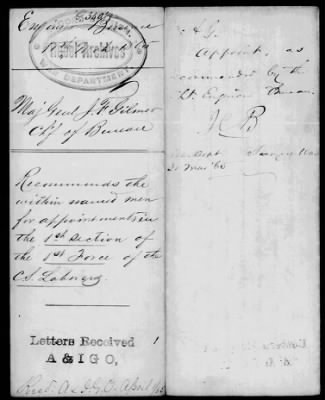 Engineer Bureau
CONFEDERATE
Rebel Archives
WAR DEPARTMENT
Maj Genl J. F. Gilmer
Chf of Bureau
Recommends the
within named men
for appointments in
the 1st Section of
the 1st Force of the
C.S. Laborers
Letters Received
A & I G O,
Recd. A & I G O. April 1/65
A & I G.
Appoint, as
recommended by the
Engineer Bureau.
War Dept
31 Mar '65